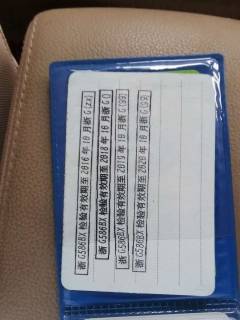 浙G586BX 检验有效期至2016年10月浙G(zx)
浙G586BX 检验有效期至2018年10月浙G()
浙G586BX 检验有效期至2019年10月浙G(99)
浙G586BX 检验有效期至2020年10月浙G(99)